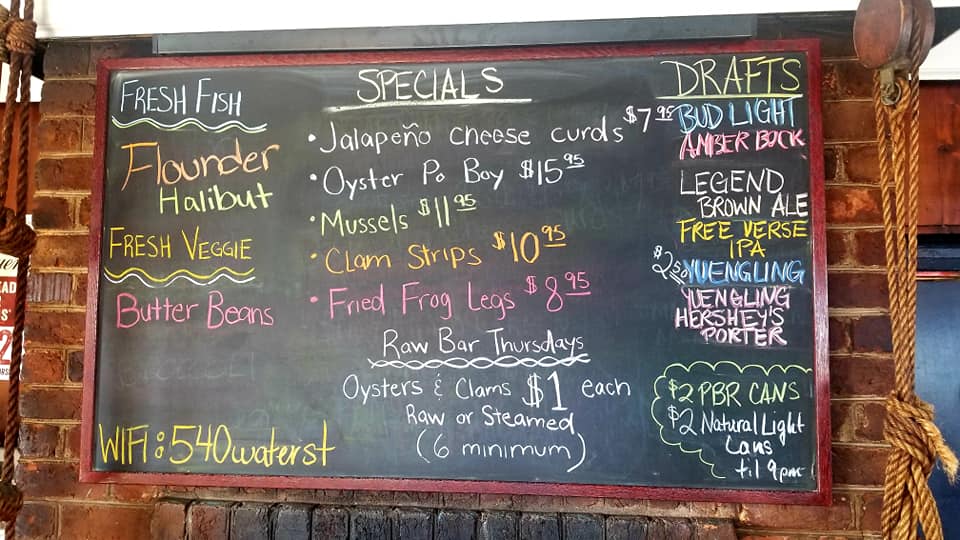 FRESH FISH
Flounder
Halibut
FRESH VEGGIE
Butter Beans
WIFI: 540waterst
SPECIALS
• Jalapeño cheese curds $7 95
• Oyster Po Boy $15 95
• Mussels $11 95
• Clam Strips $10 95
• Fried Frog Legs $8 95
Raw Bar Thursdays
Oysters & Clams $1 each
Raw or Steamed
(6 minimum)
DRAFTS
BUD LIGHT
AMBER BOCK
LEGEND
BROWN ALE
FREE VERSE
IPA
$2.50 YUENGLING
YUENGLING
HERSHEY'S
PORTER
$2 PBR CANS
$2 Natural Light
Cans
til 9pm